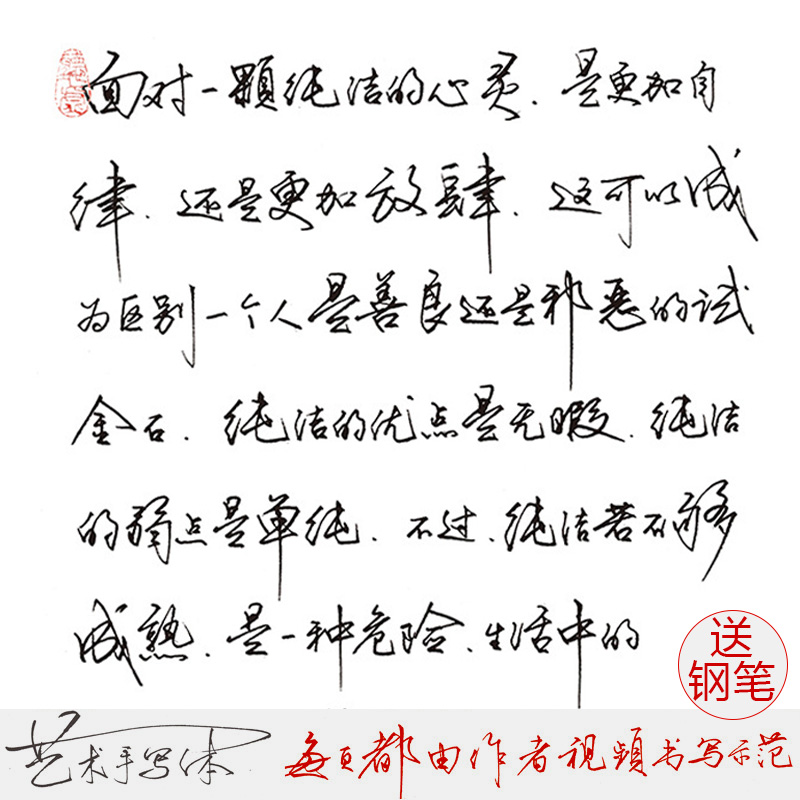 面对一颗纯洁的心灵.是更加自
律.还是更加放肆.这可以成
为区别一个人是善良还是邪恶的试
金石.纯洁的优点是无暇.纯洁
的弱点是单纯.不过.纯洁若不够
成熟.是一种危险.生活中的
送
钢笔
艺术手写体
每页都由作者视频书写示范